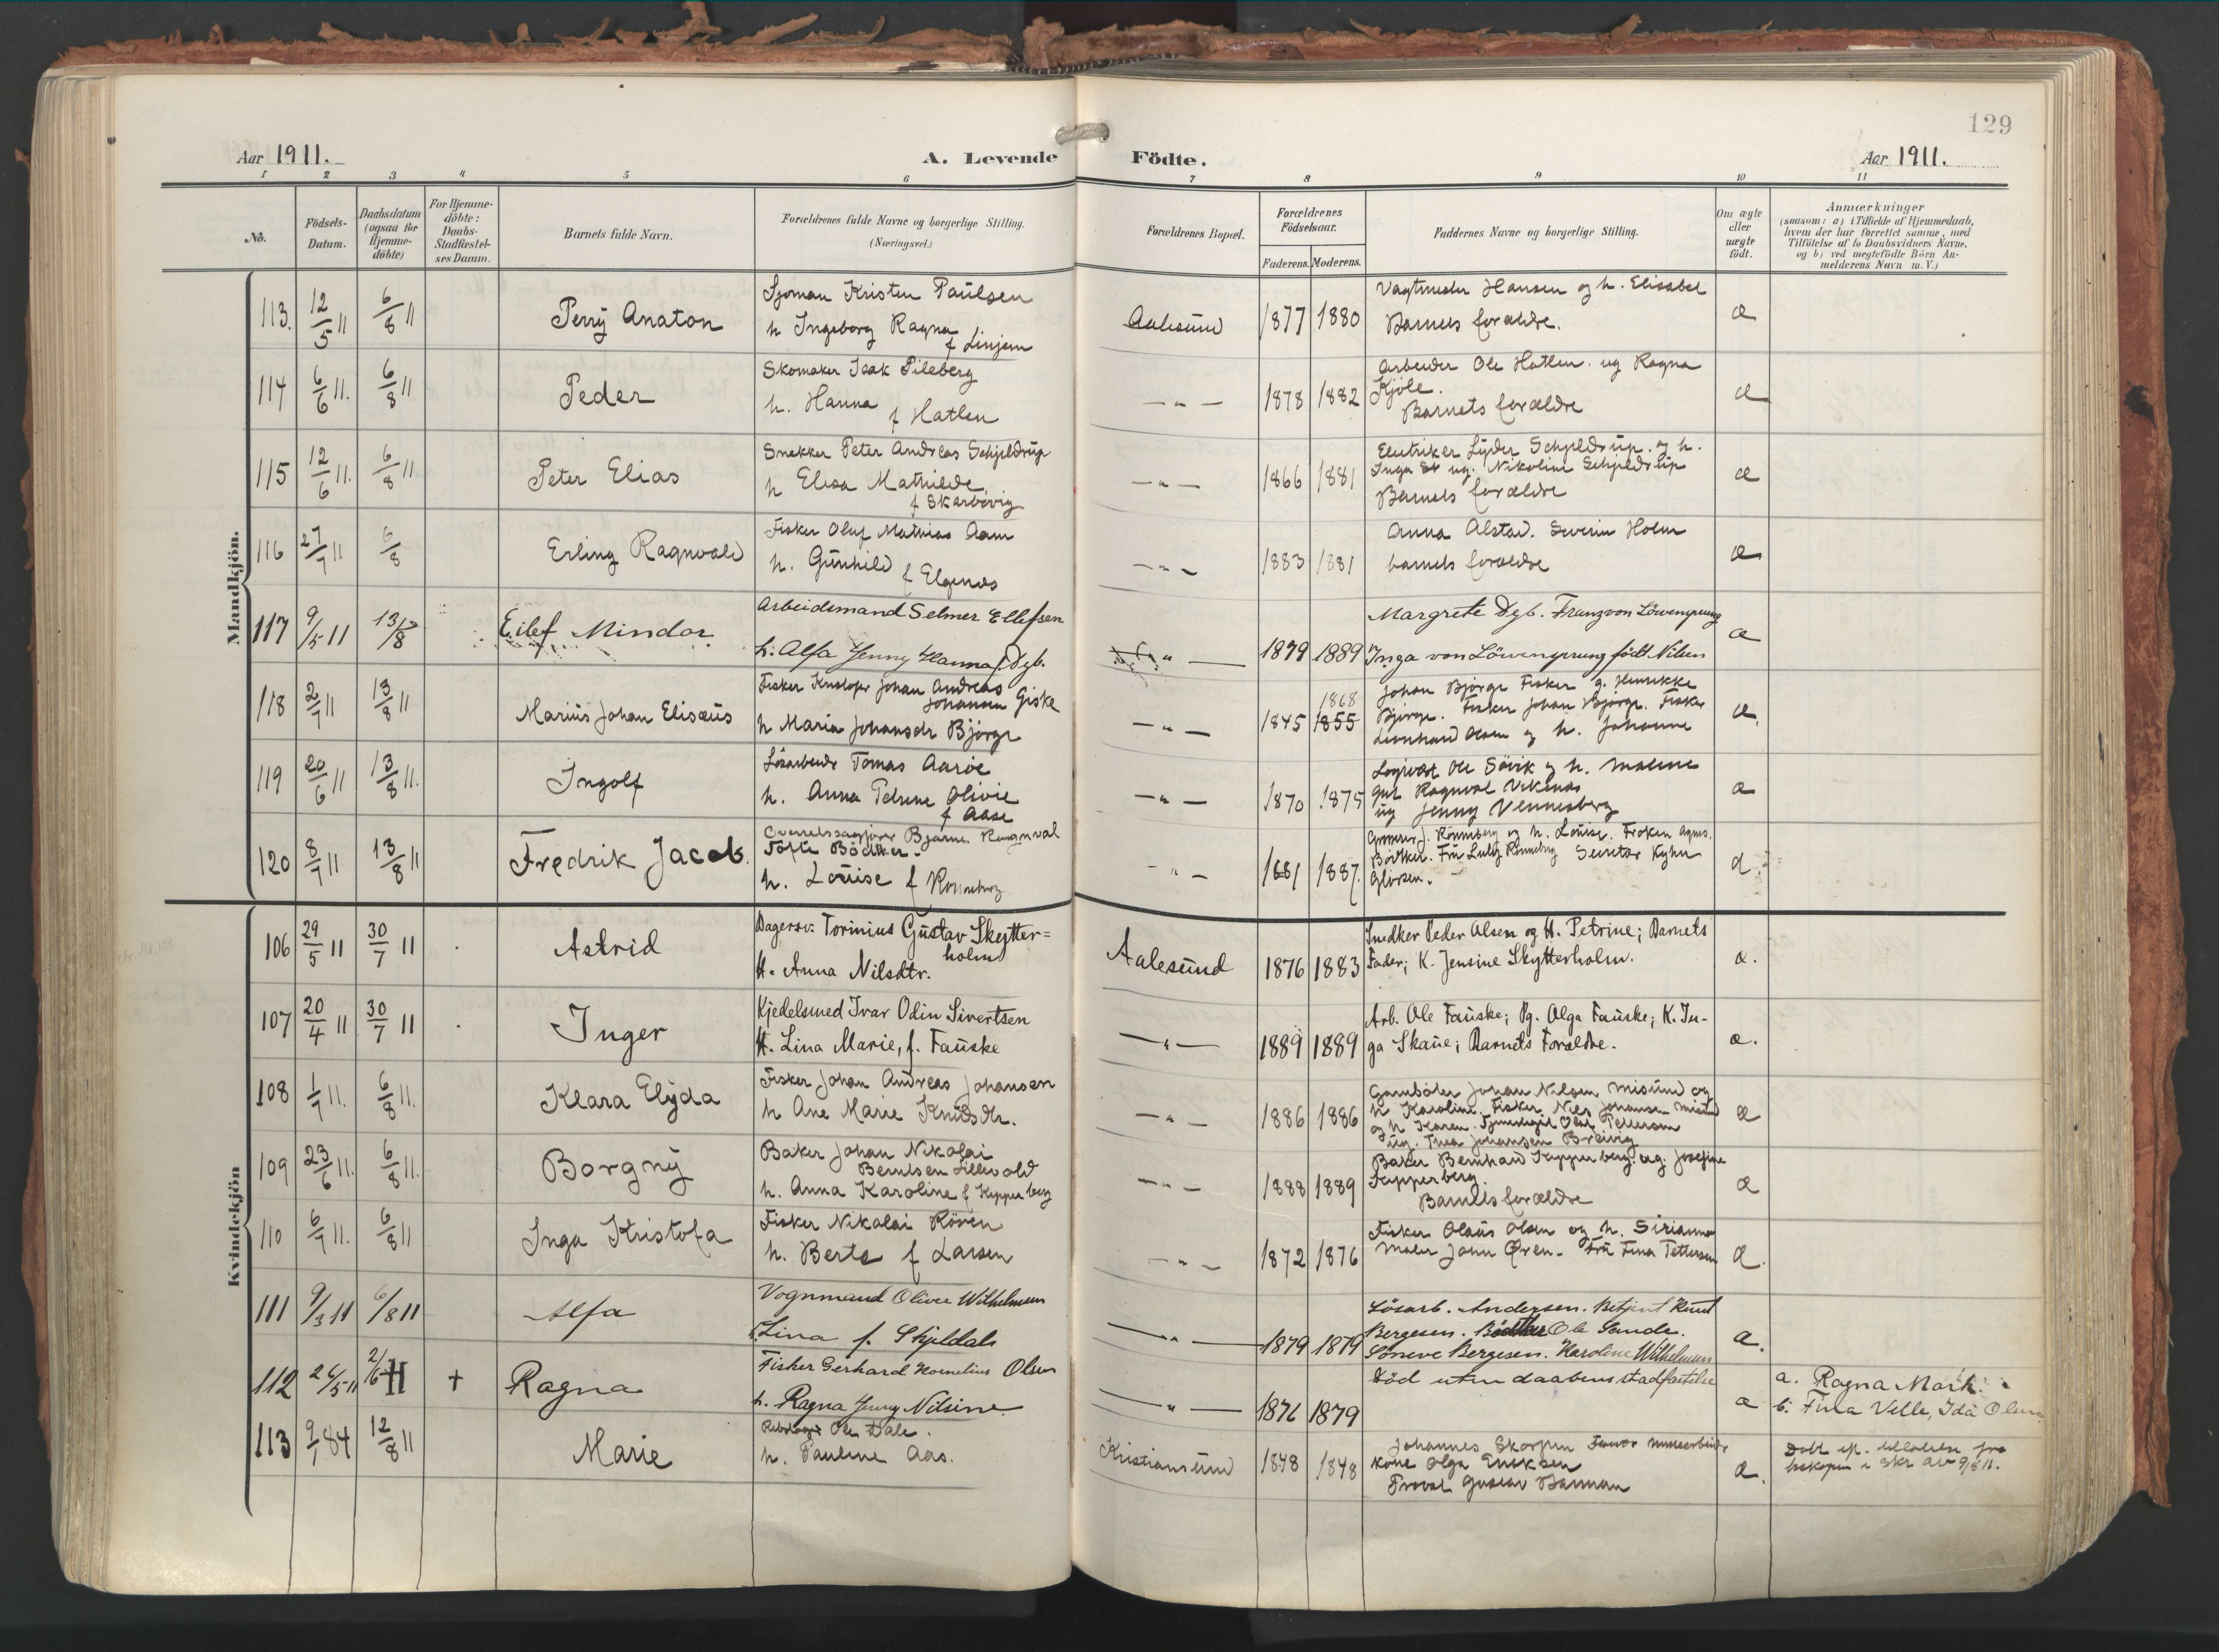 129
Aar 1911.
A. Levende Födte.
Aar 1911.
1 2 3 4 5 6 7 8 9 10 11
No.
Födsels-Datum.
Daabsdatum (ogsaa för Hjemme-döbte)
For Hjemme-döbte: Daabs-Stadfæstel-ses Datum.
Barnets fulde Navn.
Forældrenes fulde Navne og borgerlige Stilling. (Næringsvei.)
Forældrenes Bopæl.
Forældrenes Födselsaar.
Faderens. Moderens.
Faddernes Navne og borgerlige Stilling.
Om ægte eller uægte födt.
Anmærkninger
(saasom: a) i Tilfælde af Hjemmedaab,
hvem der har forrettet samme, med
Tilföielse af to Daabsvidners Navne,
og b) ved uægtefödte Börn An-
melderens Navn m. V.)
Mandkjön.
113. 12/5 11 6/8 11 Perry Anaton
Sjoman Kristen Paulsen
h Ingeborg Ragna
f Linjem
Aalesund 1877 1880
Vagtmester Hansen og h. Elisabet
Barnets forældre.
æ
114 6/6 11. 6/8 11 Peder
Skomaker Isak Pileberg
h. Hanna f Hatlen
— " — 1878 1882
Arbeider Ole Hatlen. ug Ragna
Kjöle.
Barnets forældre
æ
115 12/6 11. 6/8 11 Peter Elias
Snekker Peter Andreas Schjeldrup
h Elisa Mathilde
f Skarbövig
— " — 1866 1881
Elektriker Lyder Schjeldrup. og h.
Inga ug. Nikoline Schjeldrup
Barnets forældre
æ
116 27/7 11 6/8 Erling Ragnvald
Fisker Oluf Mathias Aam
h. Gunhild f Elgenæs
— " — 1883 1881
Anna Alstad. Severin Holm
barnets forældre
æ
117 9/5 11 13/8 Eilef Mindor
Arbeidsmand Selmer Ellefsen
h. Alfa Jenny Hanna f Dyb.
" — 1879 1889
Margrete Dyb. Franz von Löwensprung
Inga von Löwensprung födt Nilsen
æ
118 2/7 11 13/8 11 Marius Johan Elisæus
Fisker Kristofer Johan Andreas
Johansen Giske
h Maria Johansdr Björge
— " — 1845 1868 1855
Johan Björge Fisker g. Henrikke
Björge. Fisker Johan Björge. Fisker
Leonhard Olsen og h. Johanne
æ.
119 20/6 11 13/8 11. Ingolf
Lösarbeider Tomas Aaröe
h. Anna Petrine Olivie
f Aase
— " — 1870 1875
Logivært Ole Sövik og h. Malene
Ragnval Viknæs
ug Jenny Vennesberg
æ
120 8/7 11 13/8 11 Fredrik Jacob.
Overretssagförer Bjarne Ragnval
Tofte Bödtker.
h. Louise f Rönneberg
— " — 1881 1887.
J. Rönneberg og h. Louise. Fröken Agnes.
Bödtker. Fru Rönneberg
æ.
Kvindekjön
106 29/5 11 30/7 11 Astrid
Dagarb: Torinius Gustav Skytter=
holm
H. Anna Nilsdtr.
Aalesund 1876 1883
Snedker Peder Alsen og H. Petrine; Barnets
Fader; K. Jensine Skytterholm.
æ.
107 20/4 11 30/7 11 Inger
Kjedelsmed Ivar Odin Sivertsen
H. Lina Marie, f. Fauske
— " — 1889 1889
Arb. Ole Fauske; Pg. Olga Fauske; K. In-
ga Skaue; Barnets Forældre.
æ.
108 1/7 11. 6/8 11. Klara Elyda
Fisker Johan Andreas Johansen
h Ane Marie Knudsdtr.
— " — 1886 1886
Johan Nilsen Misund og
h Karoline. Fisker Nils Johansen Misund
og h Karen. Olaf Pettersen
ug. Thea Johansen Breivig
æ
109 23/6 11. 6/8 11. Borgny
Baker Johan Nikolai
Berntsen Lillevold
h. Anna Karoline f Kipperberg
— " — 1888 1889
Baker Bernhard Kipperberg. ug. Josefine
Kipperberg
Barnets forældre
æ
110 6/7 11. 6/8 11 Inga Kristofa
Fisker Nikolai Röven
h. Berte f Larsen
— " — 1872 1876
Fisker Olaus Olsen og h. Sirianna
Maler John Øren. Fru Fina Pettersen
æ.
111 9/3 11 6/8 11 Alfa
Vognmand Oliver Wilhelmsen
h. Lina f. Skjeldals
— " — 1879 1879
Lösarb. Andersen. Betjent Knut
Bergesen. Ole Sande.
Söneve Bergesen. Karoline Wilhelmsen
æ.
112 26/5 11 2/6 11 + Ragna
Fisker Gerhard Kornelius Olsen
h. Ragna Jenny Nilsine.
— " — 1876 1879
Död uten daabens stadfæstelse
æ
a. Ragna Mark.
b. Fina Velle, Ida Olsen
113 9/1 84 12/8 11 Marie
Ole Dale.
h. Pauline Aas.
Kristiansund 1848 1848
Johannes Skorpen
kone Olga Eriksen
Gustav Barman
æ.
Döbt ef. tilladelse fra
biskopen i skr av 9/8 11.